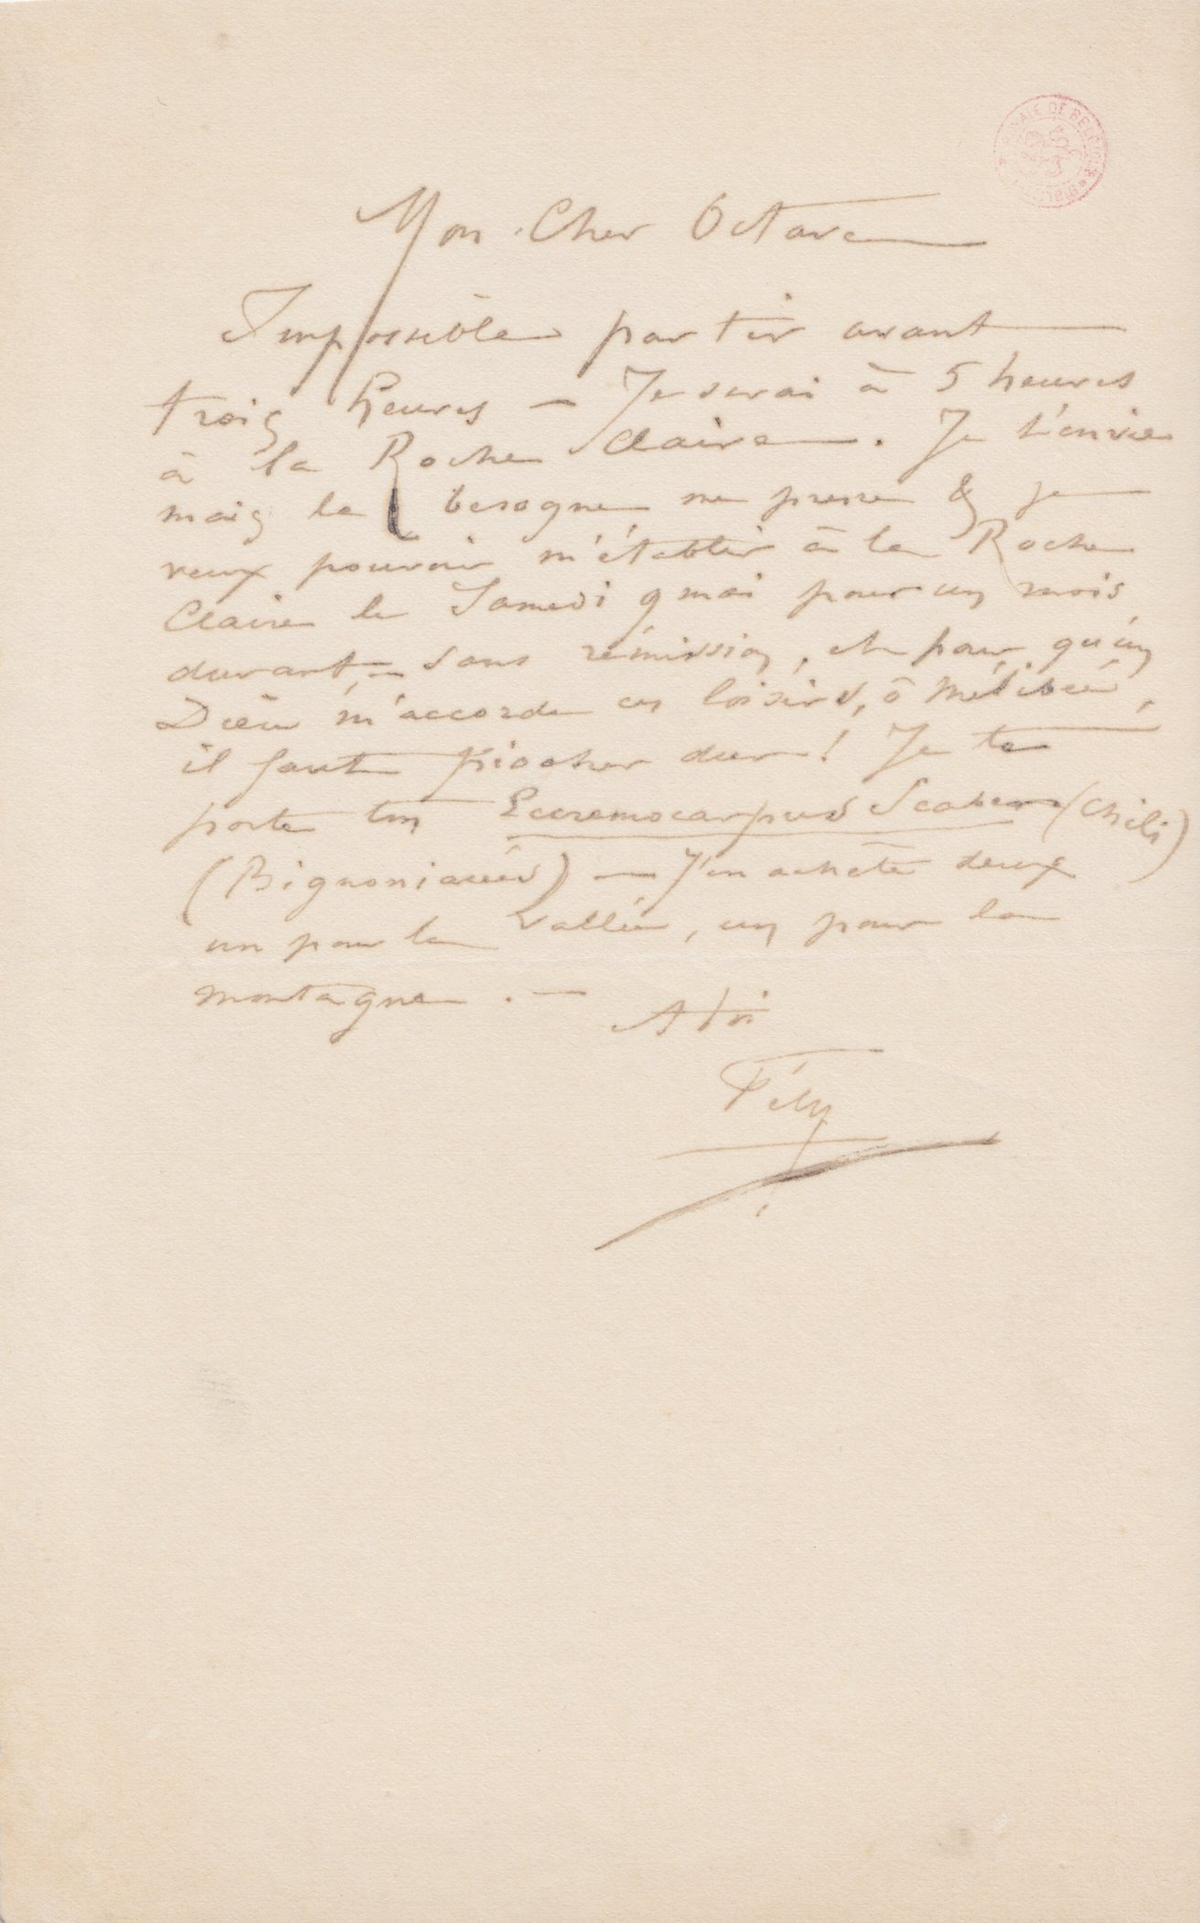 Mon Cher Octave
Impossible partir avant
trois heures — Je serai à 5 heures
à la Roche Claire. Je t'envie
mais la besogne me presse & je
veux pouvoir m'établir à la Roche
Claire le Samedi 9 mai pour un mois
durant, — sans rémission, et pour qu'un
Dieu m'accorde ces loisirs, ô Mélibée,
il faut piocher dur! Je te
porte ton Eccremocarpus Scaber (Chili)
(Bignoniacées) — J'en achète deux
un pour la vallée, un pour la
montagne. —
A toi
Fély